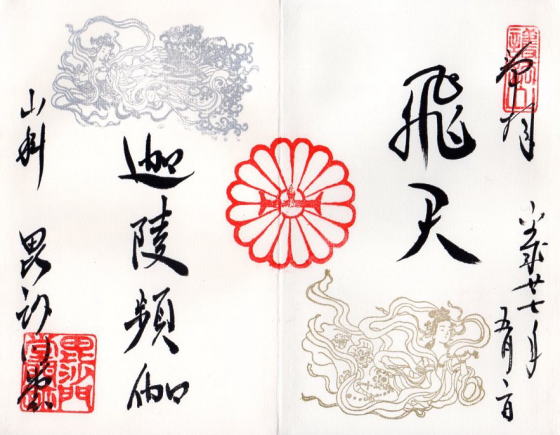 奉拝
平成廿七年
五月二日
飛天
迦陵頻伽
山科 毘沙門堂
毘沙門